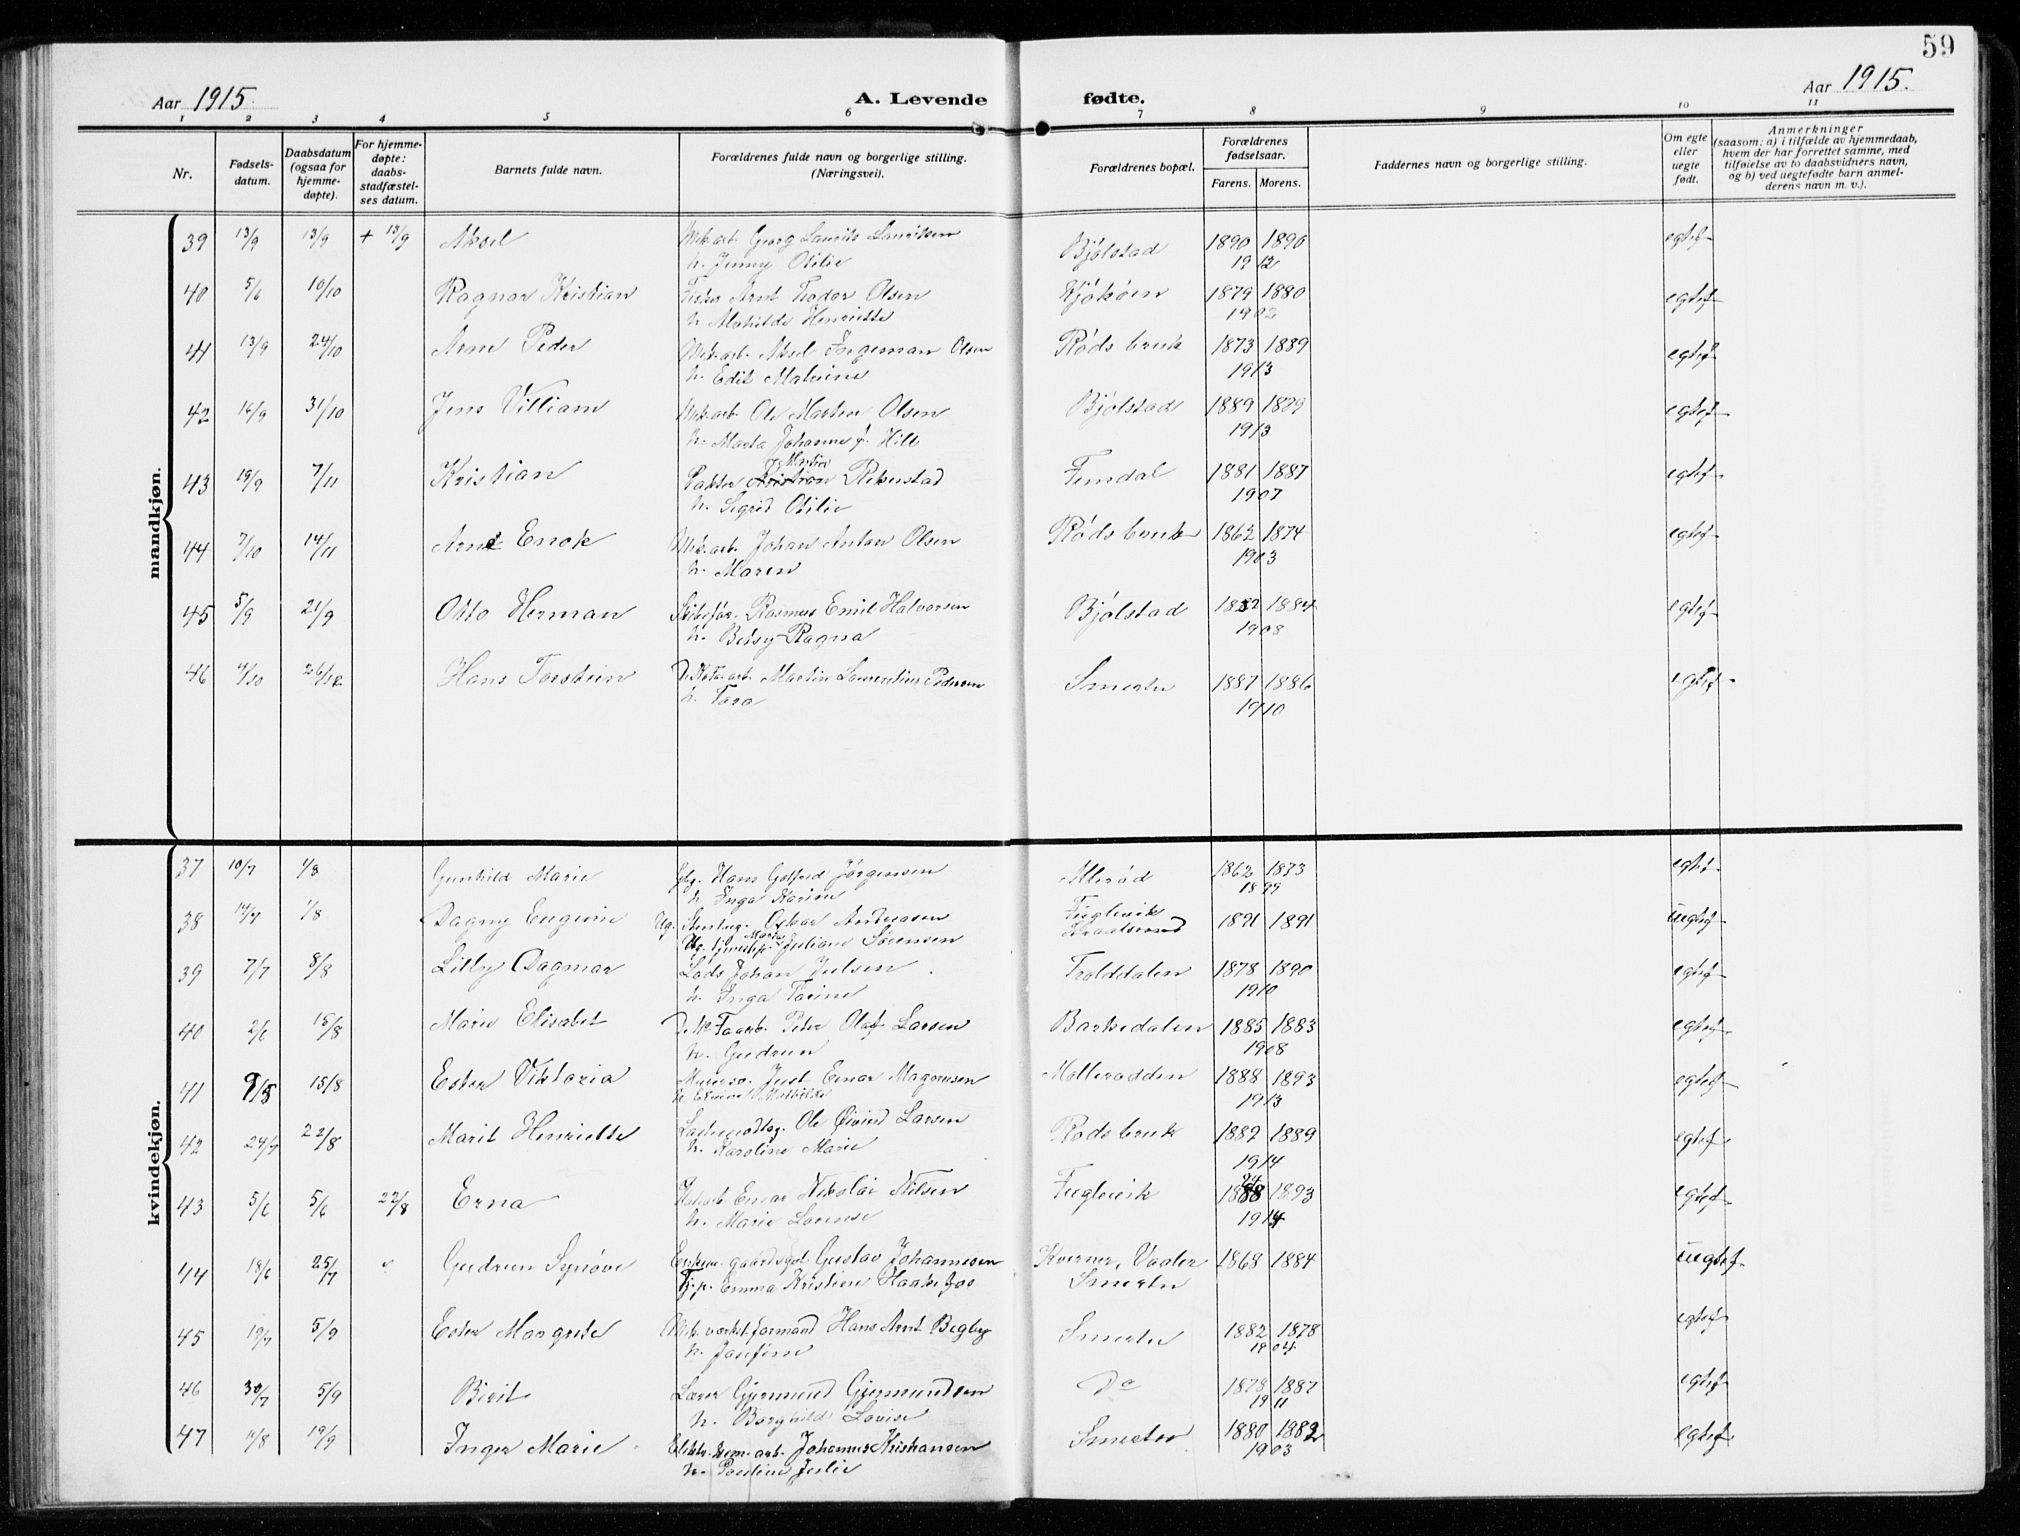 59
Aar 1915. A. Levende fødte. Aar 1915.
1 2 3 4 5 6 7 8 9 10 11
Nr. Fødsels-datum. Daabsdatum (ogsaa for hjemme-døpte). For hjemme-døpte: daabs-stadfæstel-ses datum. Barnets fulde navn. Forældrenes fulde navn og borgerlige stilling. (Næringsvei). Forældrenes bopæl. Forældrenes fødselsaar. Farens. Morens. Faddernes navn og borgerlige stilling. Om egte eller uegte født. Anmerkninger (saasom: a) i tilfælde av hjemmedaab, hvem der har forrettet samme, med tilføielse av to daabsvidners navn, og b) ved uegtefødte barn anmel-derens navn m. v.).
mandkjøn.
39 13/9 13/9 + 13/9 Aksel Mek.arb. Georg Laurits Lauritsen Bjølstad 1890 1890 egtef
h. Jenny Otilie 1912
40 5/6 10/10 Ragnar Kristian Fisker Arnt Teodor Olsen Kjøkøen 1879 1880 egtef
h. Mathilde Henriette 1902
41 13/9 24/10 Arne Peder Mek.arb. Aksel Ingeman Olsen Røds bruk 1873 1889 egtef
h. Edit Malvine 1913
42 16/9 31/10 Jens Villiam Mek.arb. Ole Martin Olsen Bjølstad 1889 1889 egtef
h. Marta Johanne f. Hill 1913
43 19/9 7/11 Kristian Martin Femdal 1881 1887 egtef
h. Sigrid Otilie 1907
44 7/10 14/11 Arne Enok Mek.arb. Johan Anton Olsen Røds bruk 1862 1874 egtef
h. Maren 1903
45 5/9 21/9 Otto Herman Skibsfør. Rasmus Emil Halvorsen Bjølstad 1882 1884 egtef
h. Betsy Ragna 1908
46 4/10 26/12 Hans Torstein Martin Laurentius Pedersen Smertu 1887 1886 egtef
h. Tora 1910
kvindekjøn.
37 10/7 1/8 Gunhild Marie Gbr. Hans Gotfred Jørgensen Allerød 1862 1873 egtef
h. Inga Karine 1899
38 14/7 1/8 Dagny Eugenie Ug. Stenhug. Oskar Andreasen Fuglevik 1891 1891 uegtef
Ug. tjenestep. Marta Juliane Sørensen
39 7/7 8/8 Lilly Dagmar Lods Johan Julsen Trolddalen 1878 1890 egtef
h. Inga Torine 1910
40 2/6 15/8 Marie Elisabet Peter Olaf Larsen Barkedalen 1885 1883 egtef
h. Gudrun 1908
41 9/5 15/8 Ester Viktoria Murersv. Just Einar Magnusen Mollerodden 1888 1893 egtef
h. Mathilde 1913
42 24/7 22/8 Marit Henriette Ole Øivind Larsen Røds bruk 1882 1889 egtef
h. Karoline Marie 1914
43 5/6 5/6 22/8 Erna Einar Nikolai Nilsen Fuglevik 1888 1893 egtef
h. Marie Lovense 1914
44 18/6 25/7 Gudrun Synøve Enkem. gaardsgut Gustav Johannesen Kverner, Vaaler 1868 1884 uegtef
Tj.p. Emma Kristine Haakefos Smertu
45 19/7 5/9 Ester Margrete Mek. verkst.formand Hans Arnt Begby Smertu 1882 1878 egtef
h. Josefine 1904
46 30/7 5/9 Birit Lærer Gjermund Gjermundsen Do 1878 1887 egtef
h. Borghild Lovise 1911
47 11/8 19/9 Inger Marie Elektr. kem. arb. Johannes Kristiansen Smertu 1880 1882 egtef
h. Pauline Julie 1903